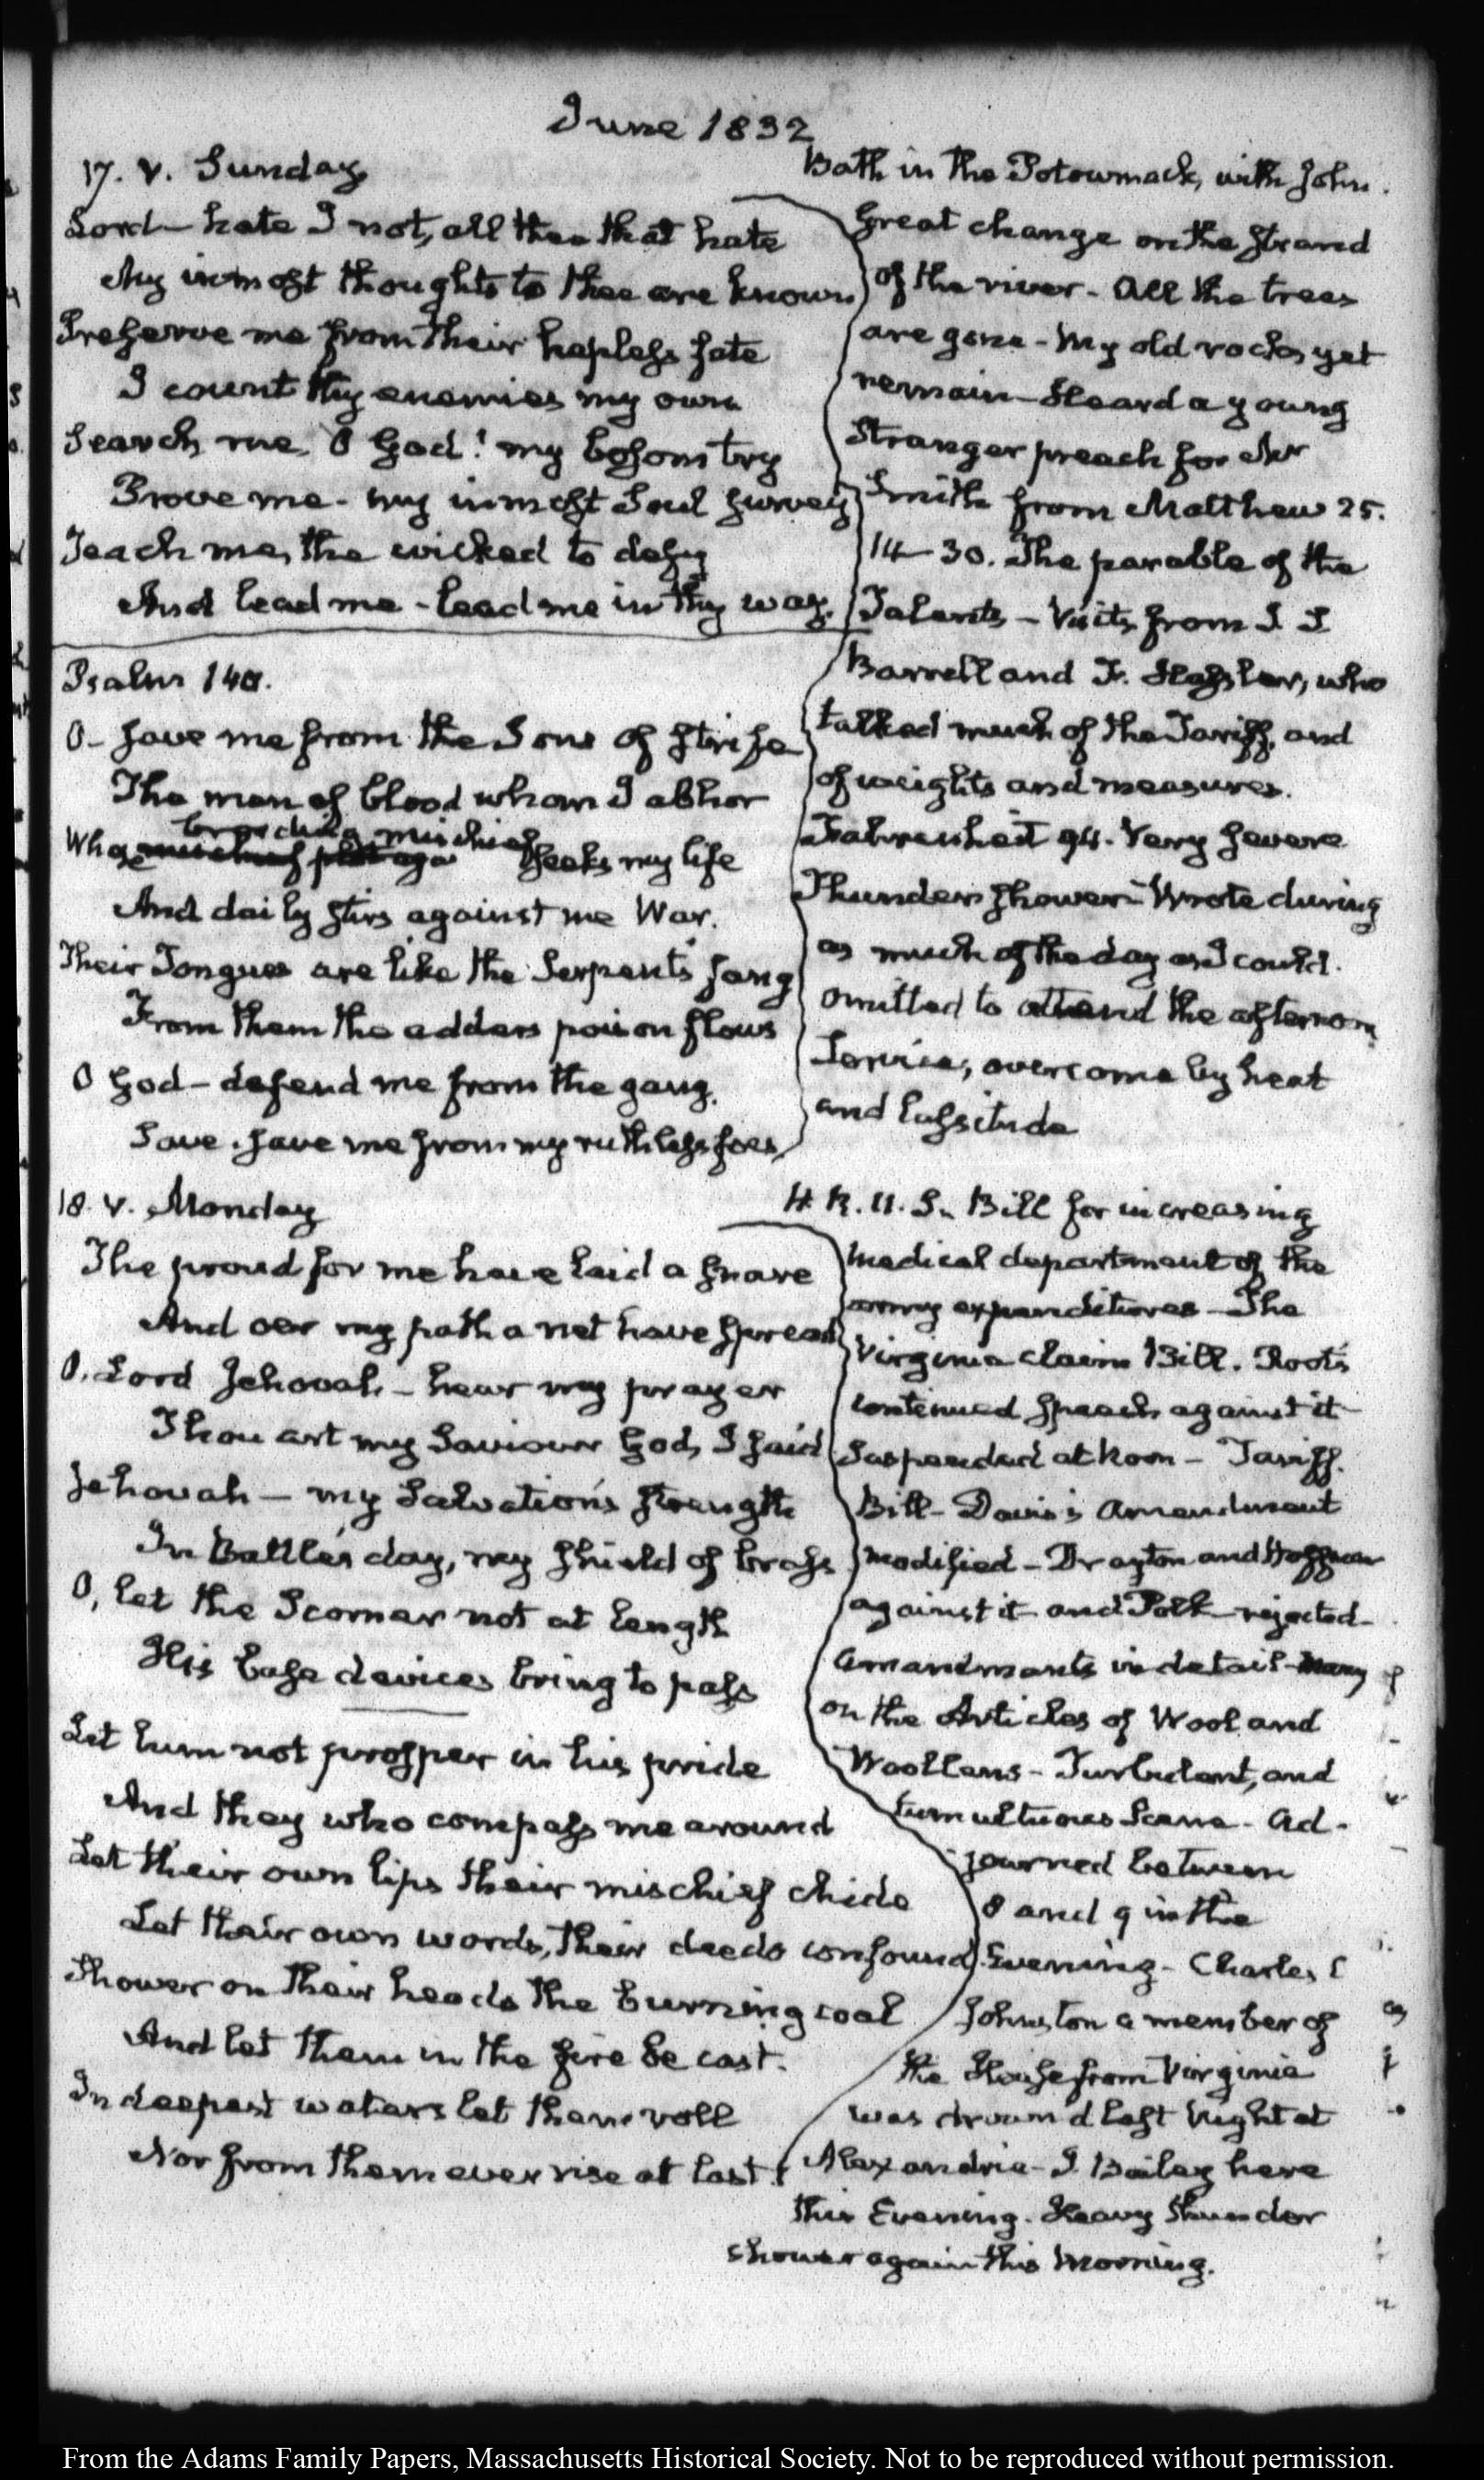 June 1832
17. V. Sunday
Lord – hate I not, all thee that hate
My inmost thoughts to thee are known
Preserve me from their hapless fate
I count thy enemies my own
Search me, O God! my bosom try
Prove me – my inmost Soul survey
Teach me, the wicked to defy
And lead me – lead me in thy way.
Psalm 140.
O – save me from the Sons of strife
The man of blood whom I abhor
brooding mischief
Whose seeks my life
And daily stirs against me War.
Their Tongues are like the Serpent's fang
From them the adders poison flows
O God – defend me from the gang.
Save, save me from my ruthless foes
Bath in the Potowmack, with John.
Great change on the strand
of the river – All the trees
are gone – My old rocks yet
remain – Heard a young
Stranger preach for Mr
Smith from Matthew 25.
14–30. The parable of the
Talents – Visits from
Barrell and F. Hassler, who
talked much of the Tariff, and
of weights and measures.
Fahrenheit 94. Very severe
Thunder shower – Wrote during
as much of the day as I could.
Omitted to attend the afternoon
Service, overcome by heat
and lassitude
18. V. Monday
The proud for me have laid a snare
And oer my path a net have spread
O, Lord Jehovah – hear my prayer
Thou art my Saviour God, I said
Jehovah – my Salvation's strength
In Battle's day, my shield of brass
O, let the Scorner not at length
His base devices bring to pass
Let him not prosper in his pride
And they who compass me around
Let their own lips their mischief chide
Let their own words, their deeds confound
Shower on their heads the burning coal
And let them in the fire be cast.
In deepest waters let them roll
Nor from them ever rise at last.
H. R. U. S. Bill for increasing
medical department of the
army expenditures – The
Virginia claim Bill. Root's
continued speech against it
Suspended at Noon – Tariff
Bill – Davis's Amendment
modified – Drayton and Hoffman
against it and Polk – rejected –
Amendments in detail – Many
on the Articles of Wool and
Woollens – Turbulent, and
tumultuous Scene – Ad-
journed between
8 and 9 in the
Evening – Charles C
Johnston a member of
the House from Virginia
was drown'd last Night at
Alexandria – J. Bailey here
this Evening. Heavy thunder
shower again this Morning.
From the Adams Family Papers, Massachusetts Historical Society. Not to be reproduced without permission.